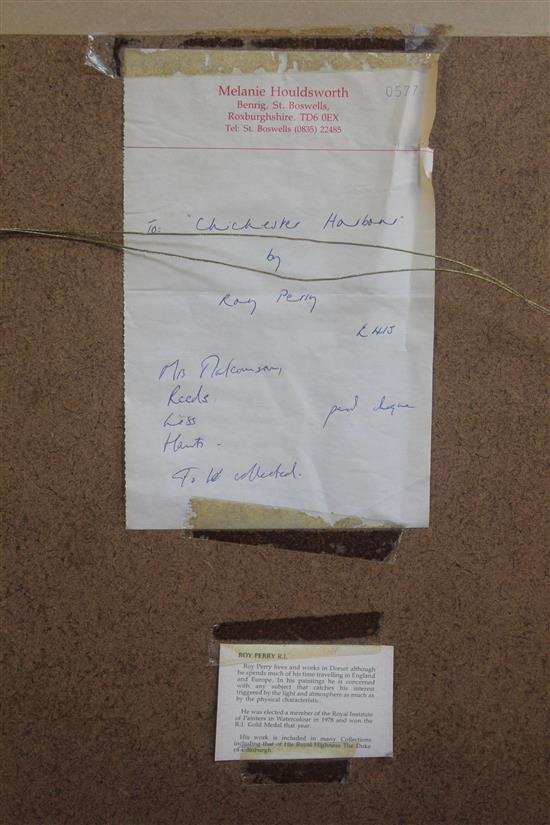 Melanie Houldsworth 0577
Benrig, St. Boswells,
Roxburghshire. TD6 0EX
Tel: St. Boswells (0835) 22485
To: "Chichester Harbour"
by
Roy Perry
£415
Mrs Malcomson,
Reeds.
Liss paid cheque
Hants -
To be collected.
ROY PERRY R.I.
Roy Perry lives and works in Dorset although
he spends much of his time travelling in England
and Europe. In his paintings he is concerned
with any subject that catches his interest
triggered by the light and atmosphere as much as
by the physical characteristic.
He was elected a member of the Royal Institute
of Painters in Watercolour in 1978 and won the
R.I. Gold Medal that year.
His work is included in many Collections
including that of His Royal Highness The Duke
of Edinburgh.